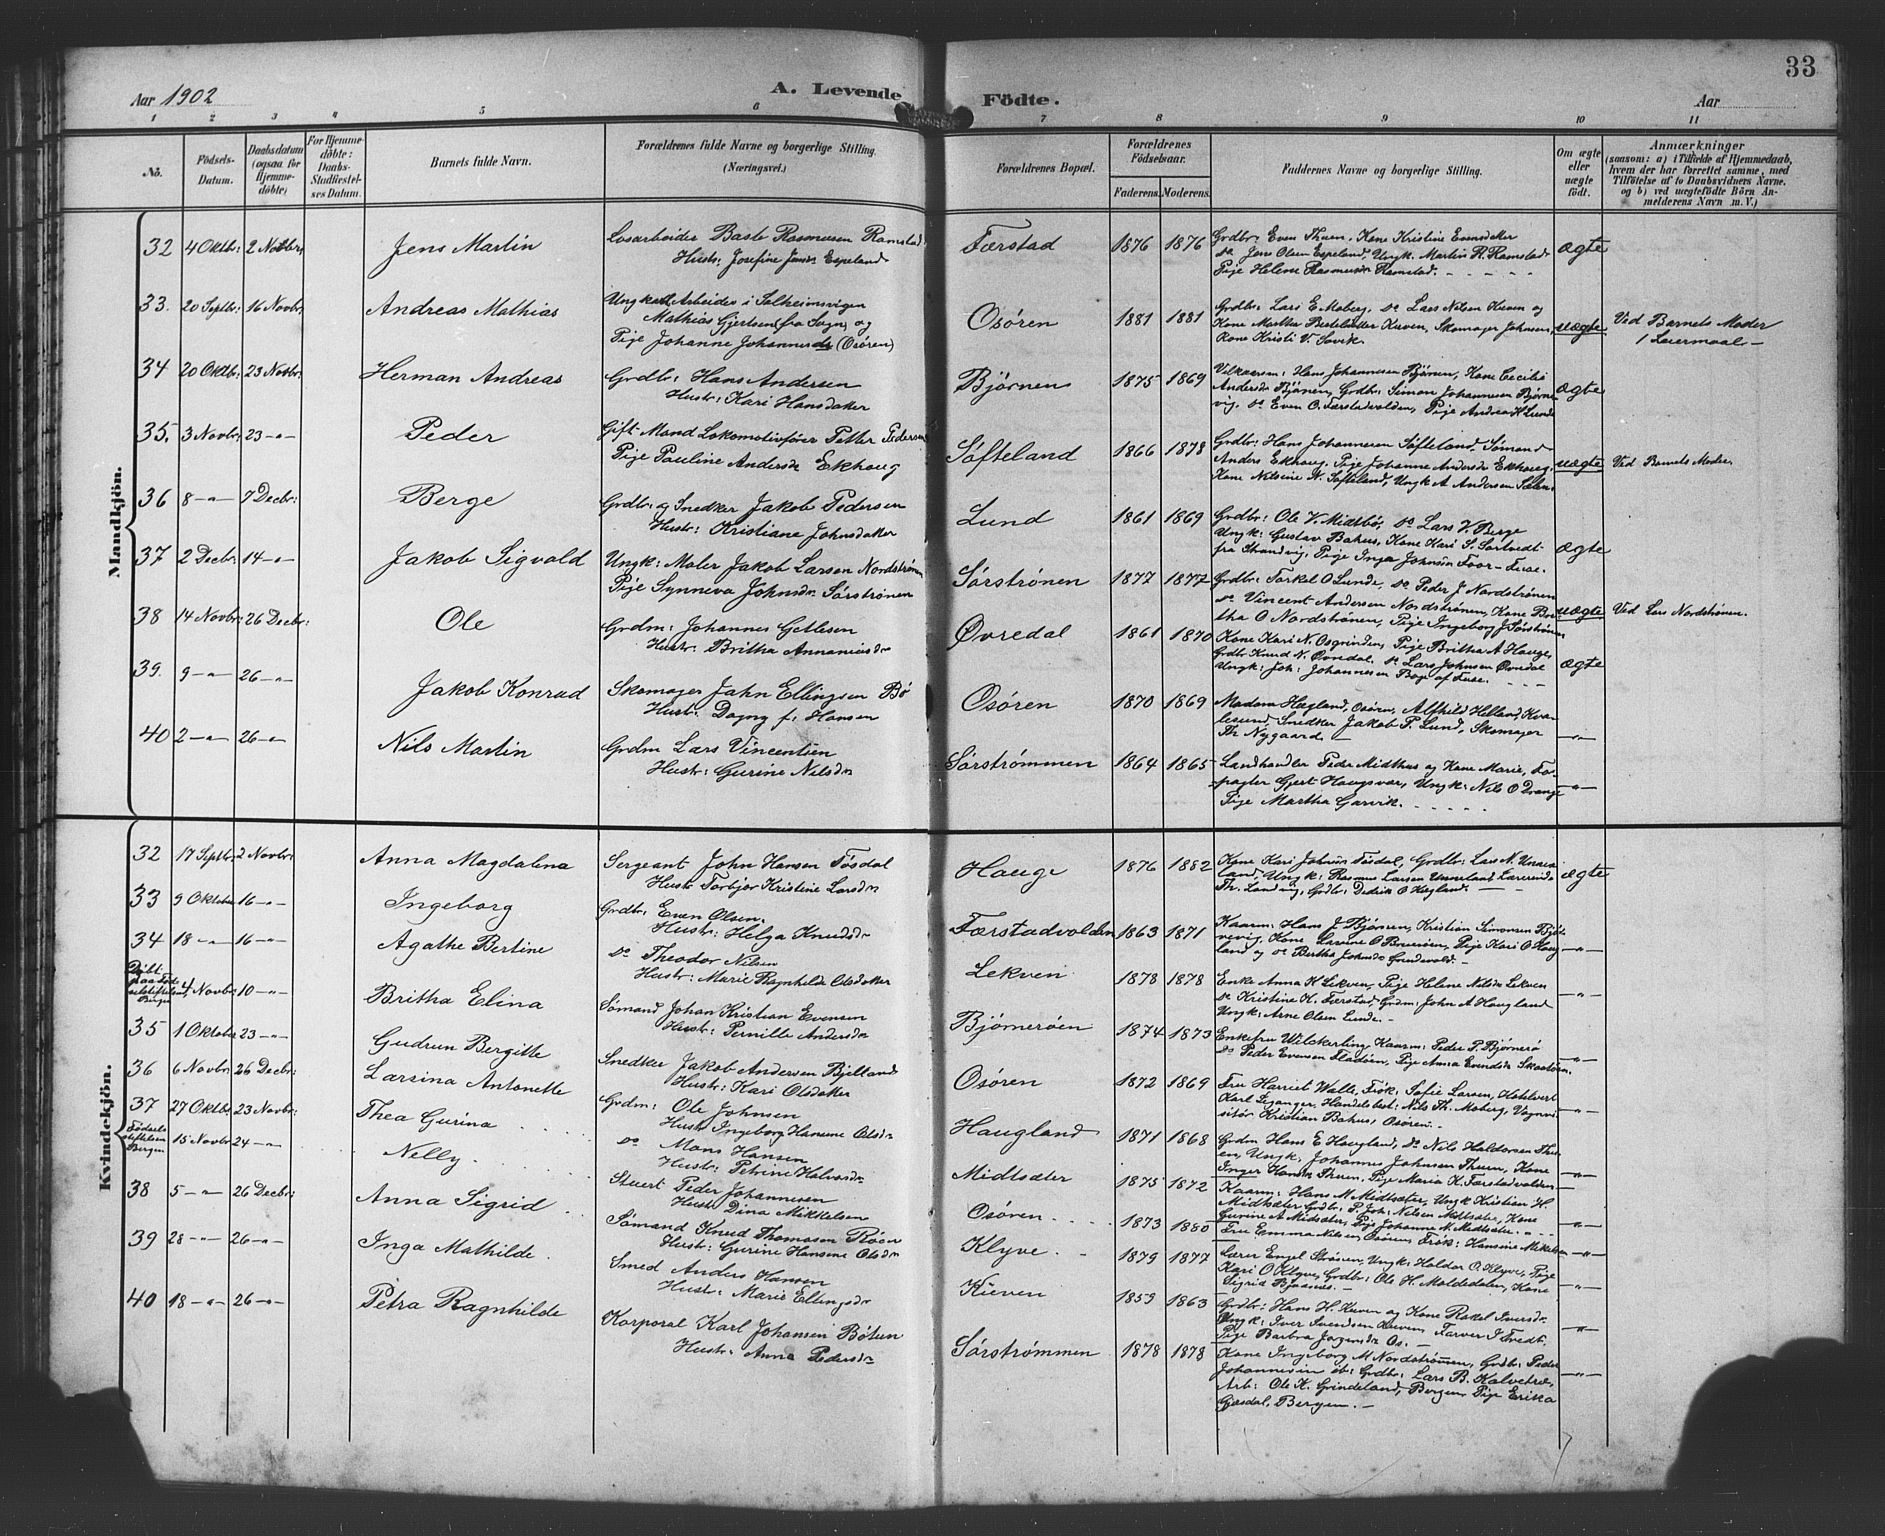 Aar 1902
A. Levende
Födte.
Aar
33
1 2 3 4 5 6 7 8 9 10 11
No.
Födsels-Datum.
Daabsdatum (ogsaa for Hjemmedöbte)
For Hjemmedöbte: Daabs-Stadfæstelses Datum.
Barnets fulde Navn.
Forældrenes fulde Navne og borgerlige Stilling. (Næringsvei.)
Forældrenes Bopæl.
Forældrenes Födselsaar.
Faderens. Moderens.
Faddernes Navne og borgerlige Stilling.
Om ægte eller uægte födt.
Anmærkninger
(saasom: a) i Tilfælde af Hjemmedaab,
hvem der har forrettet samme, med
Tilföielse af to Daabsvidners Navne.
og b) ved uægtefödte Börn An-
melderens Navn m. V.)
Mandkjön.
32 4 Oktbr: 2 Novbr: Jens Martin
Rasmusen Ramstad
Hustr: Josefine Jensdr Espeland
Færstad 1876 1876
Grdbr: Even Thuen, Kone Kristine Evensdatter
do Jens Olsen Espeland, Ungk. Martin R. Ramstad
Pige Helene Rasmusdr Ramstad.
ægte
33. 20 Septbr: 16 Novbr: Andreas Mathias
Arbeider i Solheimsvigen
Mathias Gjertsen (fra Sogn) og
Pige Johanne Johannesdr (Osören)
Osören 1881 1881
Grdbr: Lars E. Moberg, do Lars Nilsen Kuven og
Skomager Johnsen,
Kone Kristi V. Sövik.
uægte
Ved Barnets Moder
1 Leiermaal
34 20 Oktbr: 23 Novbr: Herman Andreas
Grdbr: Hans Andersen
Hustr: Kari Hansdatter
Bjørnen 1875 1869
Hans Johannesen Bjørnen, Kone Cecilie
Andersdr Bjørnen, Grdbr: Simon Johannesen Bjørne-
vig, do Even O. Færstadvolden, Pige Andrea H Lunde
ægte
35. 3 Novbr: 23 -"- Peder
Gift Mand Lokomotivfører Petter Pedersen
Pige Pauline Andersdr Ekhaug
Søfteland 1866 1878
Grdbr: Hans Johannesen Søfteland, Sømand
Anders Ekhaug, Pige Johanne Andersdr Ekhaug
Kone Nilsine N. Søfteland, Ungk A Andersen Sælen
uægte
Ved Barnets Moder.
36 8 -"- 7 Decbr: Berge
Grdbr: og Snedker Jakob Pedersen
Hustr: Kristiane Johnsdatter
Lund 1861 1869
Grdbr: Ole V. Midtbø, do Lars V. Berge
Ungk: Gustav Bahus, Kone Kari S. Sortvedt
fra Strandvig, Pige Inga Johnsen
ægte
37 2 Decbr: 14 -"- Jakob Sigvald
Ungk: Maler Jakob Larsen Nordstrønen
Pige Synneva Johnsdr Sørstrønen
Sørstrønen 1877 1877
Grdbr: Torkel O Lunde, do Peder J Nordstrønen
do Vincent Andersen Nordstrønen, Kone Bri-
tha O Nordstrønen, Pige Ingeborg J Sørstrønen
uægte
Ved Lars Nordstrønen.
38 14 Novbr: 26 Decbr: Ole
Grdm: Johannes Getlesen
Hustr: Britha Annaniasdr
Øvredal 1861 1870
Kone Kari N. Osgrinden, Pige Britha A Hauge,
Grdbr Knud N. Øvredal, do Lars Johnsen Øvredal
Ungk: Joh: Johannesen af Fuse.
ægte
39. 9 -"- 26 -"- Jakob Konrad
Skomager John Ellingsen Bø
Hustr: Dagny f: Hansen
Osören 1870 1869
Madam Hægland, Osören, Alfhild Helland,
Snedker Jakob P. Lund, Skomager
Th Nygaard.
-"-
40 2 -"- 26 -"- Nils Martin
Grdm Lars Vincentsen
Hustr: Gurine Nilsdr
Sørstrømmen 1864 1865
Landhandler Peder Midthus og Kone Marie, For-
pagter Gjert Haugsvær, Ungk: Nils O Drange
Pige Martha Garvik.
-"-
Kvindekjön.
32 17 Septbr: 2 Novbr: Anna Magdalena
Sergeant John Hansen Tøsdal
Hustr Torbjør Kristine Larsdr
Hauge 1876 1882
Kone Kari Johnsdr Tøsdal, Grdbr: Lars N. Unne-
land, Ungk: Rasmus Larsen Unneland
Th. Landvig, Grdbr: Didrik O Hegland.
ægte
33 9 Oktober 16 -"- Ingeborg
Grdbr: Even Olsen.
Hustr: Helga Knudsdr
Færstadvolden 1863 1871
Kaarm: Hans J Bjørnen, Kristian Simonsen Bjør-
nevig, Kone Lavine O Bruerøen, Pige Kari O Haug-
land og do Bertha Johnsdr Grindevold.
-"-
34 18 -"- 16 -"- Agathe Bertine
do Theodor Nilsen
Hustr: Marie Ragnhilde Olsdatter
Lekven 1878 1878
Enke Anna H Lekven, Pige Helene Nilsdr Lekven
do Kristine H. Færstad, Grdm: John A Haugland
Ungk: Arne Olsen Lunde.
-"-
Döbt
paa Föd-
selsstiftelsen,
Bergen
4 Novbr: 10 -"- Britha Elina
Sømand Johan Kristian Evensen
Hustr: Pernille Andersdr
Bjørnerøen 1874 1873
Enkefru Wilckerling, Kaarm: Peder P. Bjørnerø
do Peder Evensen Flaðøen, Pige Anna Evensdr
-"-
35 1 Oktober 23 -"- Gudrun Bergitte
Snedker Jakob Andersen Bjelland
Hustr: Kari Olsdatter
Osören 1872 1869
Fru Harriet Walle, Frøk: Sofie Larsen, Hotelvert
Karl Hegunger, Handelsbest: Nils Th. Moberg, Vognvi-
sitør Kristian Bahus, Osören.
-"-
36 6 Novbr: 26 Decbr: Larsina Antonette
Grdm: Ole Johnsen
Hustr Ingeborg Hansine Olsdr
Haugland 1871 1868
Grdm Hans E Haugland, do Nils Haldorsen Thu-
en, Ungk: Johannes Johnsen Thuen, Kone
Inger Hansdr Thuen, Pige Maria K. Færstadvolden
-"-
37 27 Oktbr: 23 Novbr: Thea Gurina
do Mons Hansen
Hustr: Petrine Halvorsdr
Midtsæter 1875 1872
Kaarm: Hans M Midtsæter, Ungk Kristian H.
Midtsæter, Grdbr: P. Joh: Nilsen Midtsæter, Kone
Gurine A Midtsæter, Pige Johanne M. Midtsæter.
-"-
Födsels-
stiftelsen
Bergen
15 Novbr: 24 -"- Nelly
Stuert Peder Johannesen
Hustr Dina Mikkelsen
Osören 1873 1880
Fru Emma Nilsen, Osören, Frøk: Hansine Mikelsen
-"-
38 5 -"- 26 Decbr: Anna Sigrid
Sømand Knud Thomasen Røen
Hustr: Gurine Hansine Olsdr
Klyve 1879 1877
Lærer Engel Strøsen, Ungk: Haldor O. Klyve, Pige
Kari O Klyve, Grdbr: Ole H. Moldedalen, Kone
Sigrid Bjaanes.
-"-
39 28 -"- 26 -"- Inga Mathilde
Smed Anders Hansen
Hustr: Marie Ellingsdr
Kuven 1859 1863
Grdbr: Hans H. Kuven og Kone Rakel Iversdr
Ungk: Iver Svendsen Kuven, Farver J Tvedt,
Pige Barbra Os.
-"-
40 18 -"- 26 -"- Petra Ragnhilde
Korporal Karl Johansen Bøtun
Hustr: Anna Pedersdr
Sørstrømmen 1878 1878
Kone Ingeborg M Nordstrønen, Grdbr: Peder
Johannesen ib: Grdbr: Lars B. Kalvetræ,
Arb: Ole K. Grindeland, Bergen, Pige Erika
Gjøsdal, Bergen.
-"-